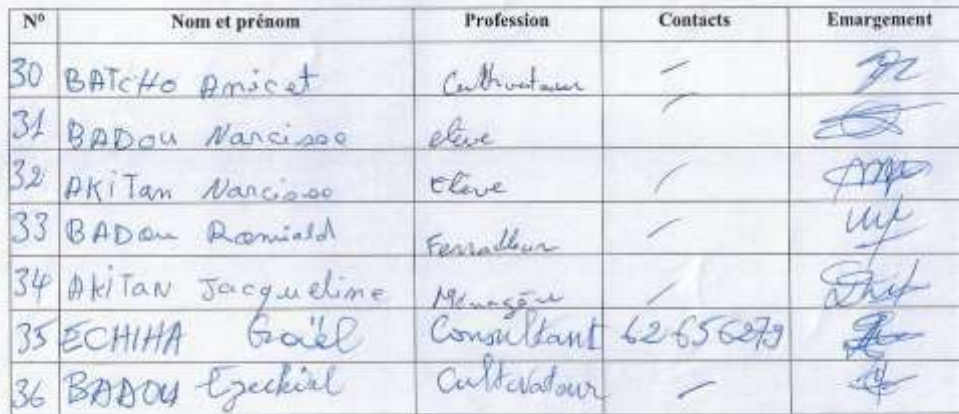 N° Nom et prénom Profession Contacts Emargement
30 BATCHO Anicet Cultivateur /
31 BADOU Narcisse eleve /
32 AKITAN Narcisse Eleve /
33 BADOU Romiald Ferrailleur /
34 AKITAN Jacqueline Ménagère /
35 ECHIHA Gaël Consultant 62656279
36 BADOU Ezeckiel Cultivateur /